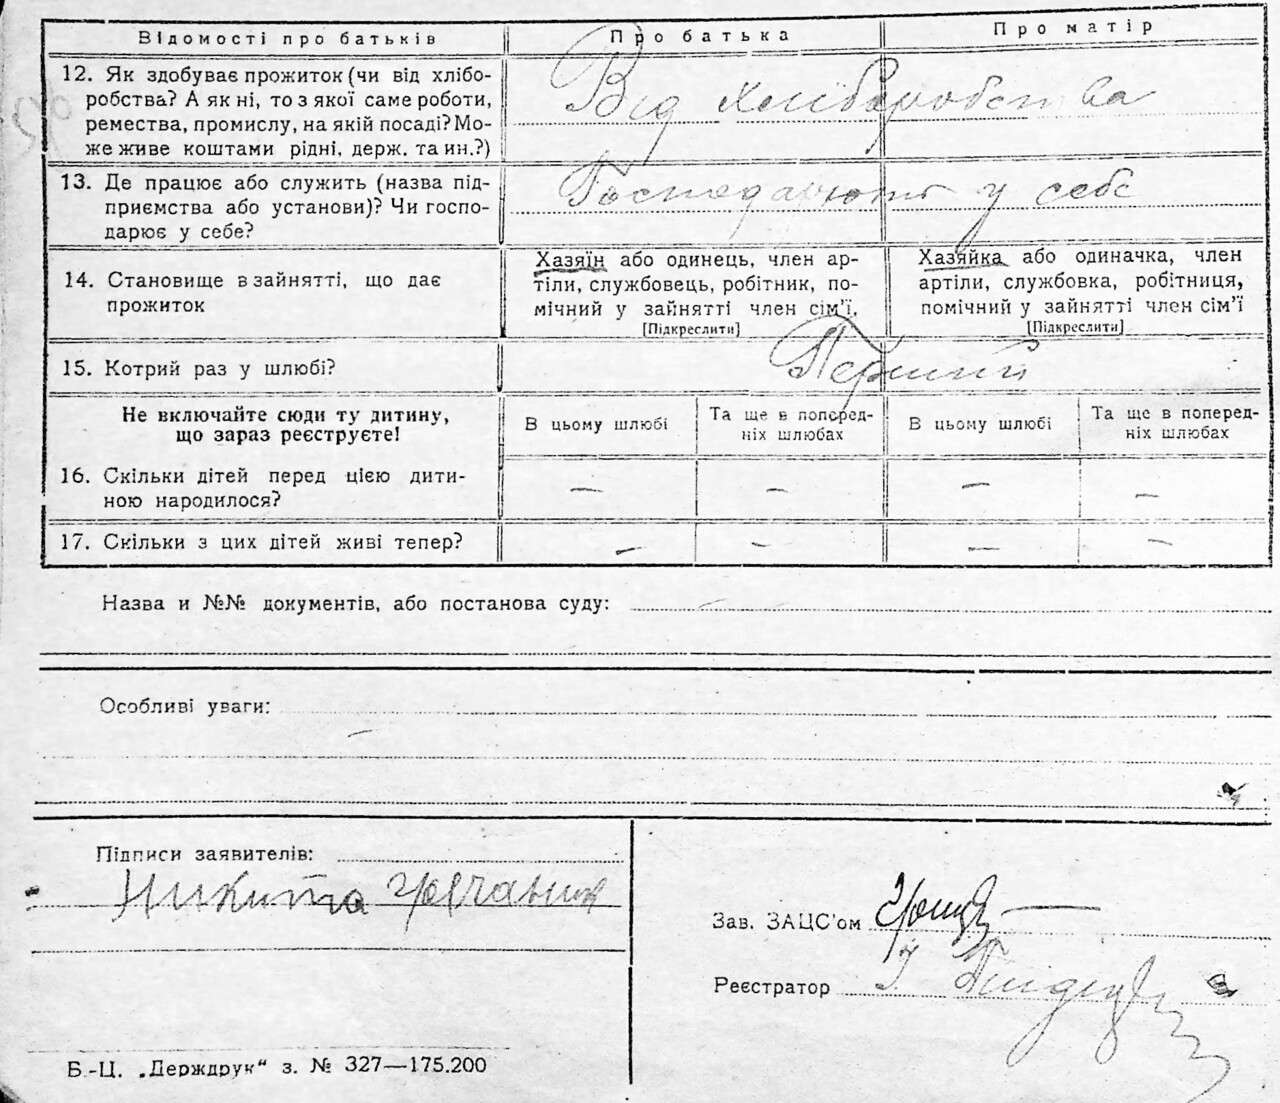 Відомості про батьків Про батька Про матір
12. Як здобуває прожиток (чи від хлібо-
робства? А як ні, то з якої саме роботи,
ремества, промислу, на якій посаді? Мо-
же живе коштами рідні, держ. та ин.?)
Від хліборобства
13. Де працює або служить (назва під-
приємства або установи)? Чи госпо-
дарює у себе?
Господарюют у себе
14. Становище в зайнятті, що дає
прожиток
Хазяїн або одинець, член ар-
тіли, службовець, робітник, по-
мічний у зайнятті член сім'ї.
[Підкреслити]
Хазяйка або одиначка, член
артіли, службовка, робітниця,
помічний у зайнятті член сім'ї
[Підкреслити]
15. Котрий раз у шлюбі?
Перший
Не включайте сюди ту дитину,
що зараз реєструєте!
В цьому шлюбі
Та ще в поперед-
ніх шлюбах
В цьому шлюбі
Та ще в поперед-
ніх шлюбах
16. Скільки дітей перед цією дити-
ною народилося?
— — — —
17. Скільки з цих дітей живі тепер?
— — — —
Назва и №№ документів, або постанова суду: —
Особливі уваги:
—
Підписи заявителів:
Никита
Зав. ЗАЦС'ом
Реєстратор
Б.-Ц. „Держдрук" з. № 327—175.200